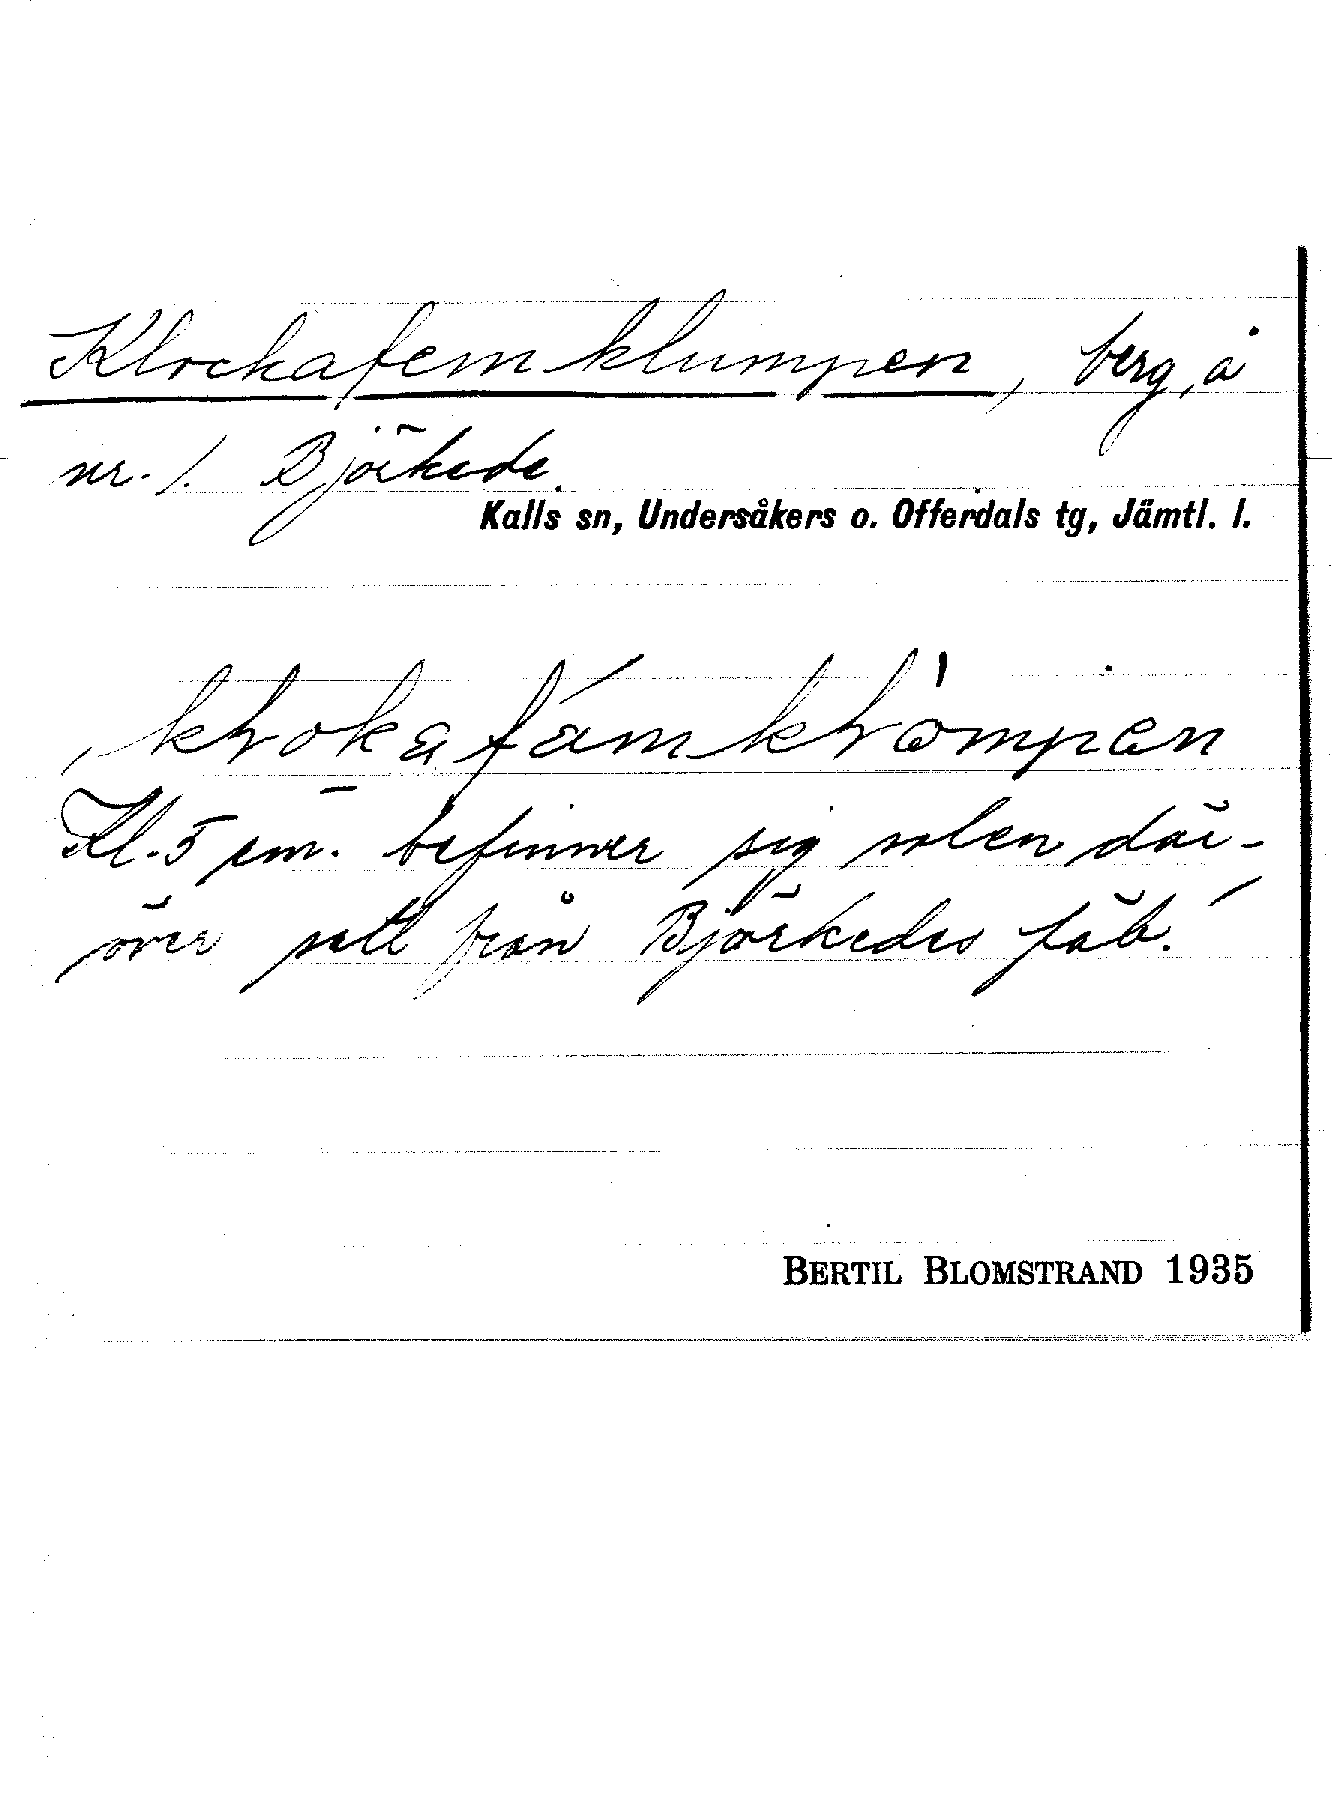 Klockafemklumpen, berg, å
nr. 1. Björkede.
Kalls sn, Undersåkers o. Offerdals tg, Jämtl. l.
Kl. 5 em. befinner sig solen där-
över sett från Björkedes fäb.
BERTIL BLOMSTRAND 1935